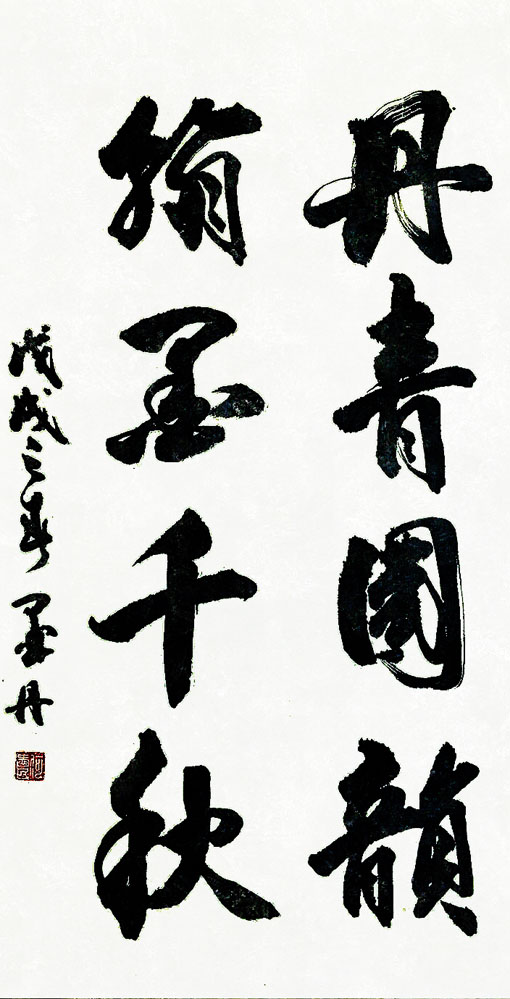 丹青國韻
翰墨千秋
戊戌之春 墨丹